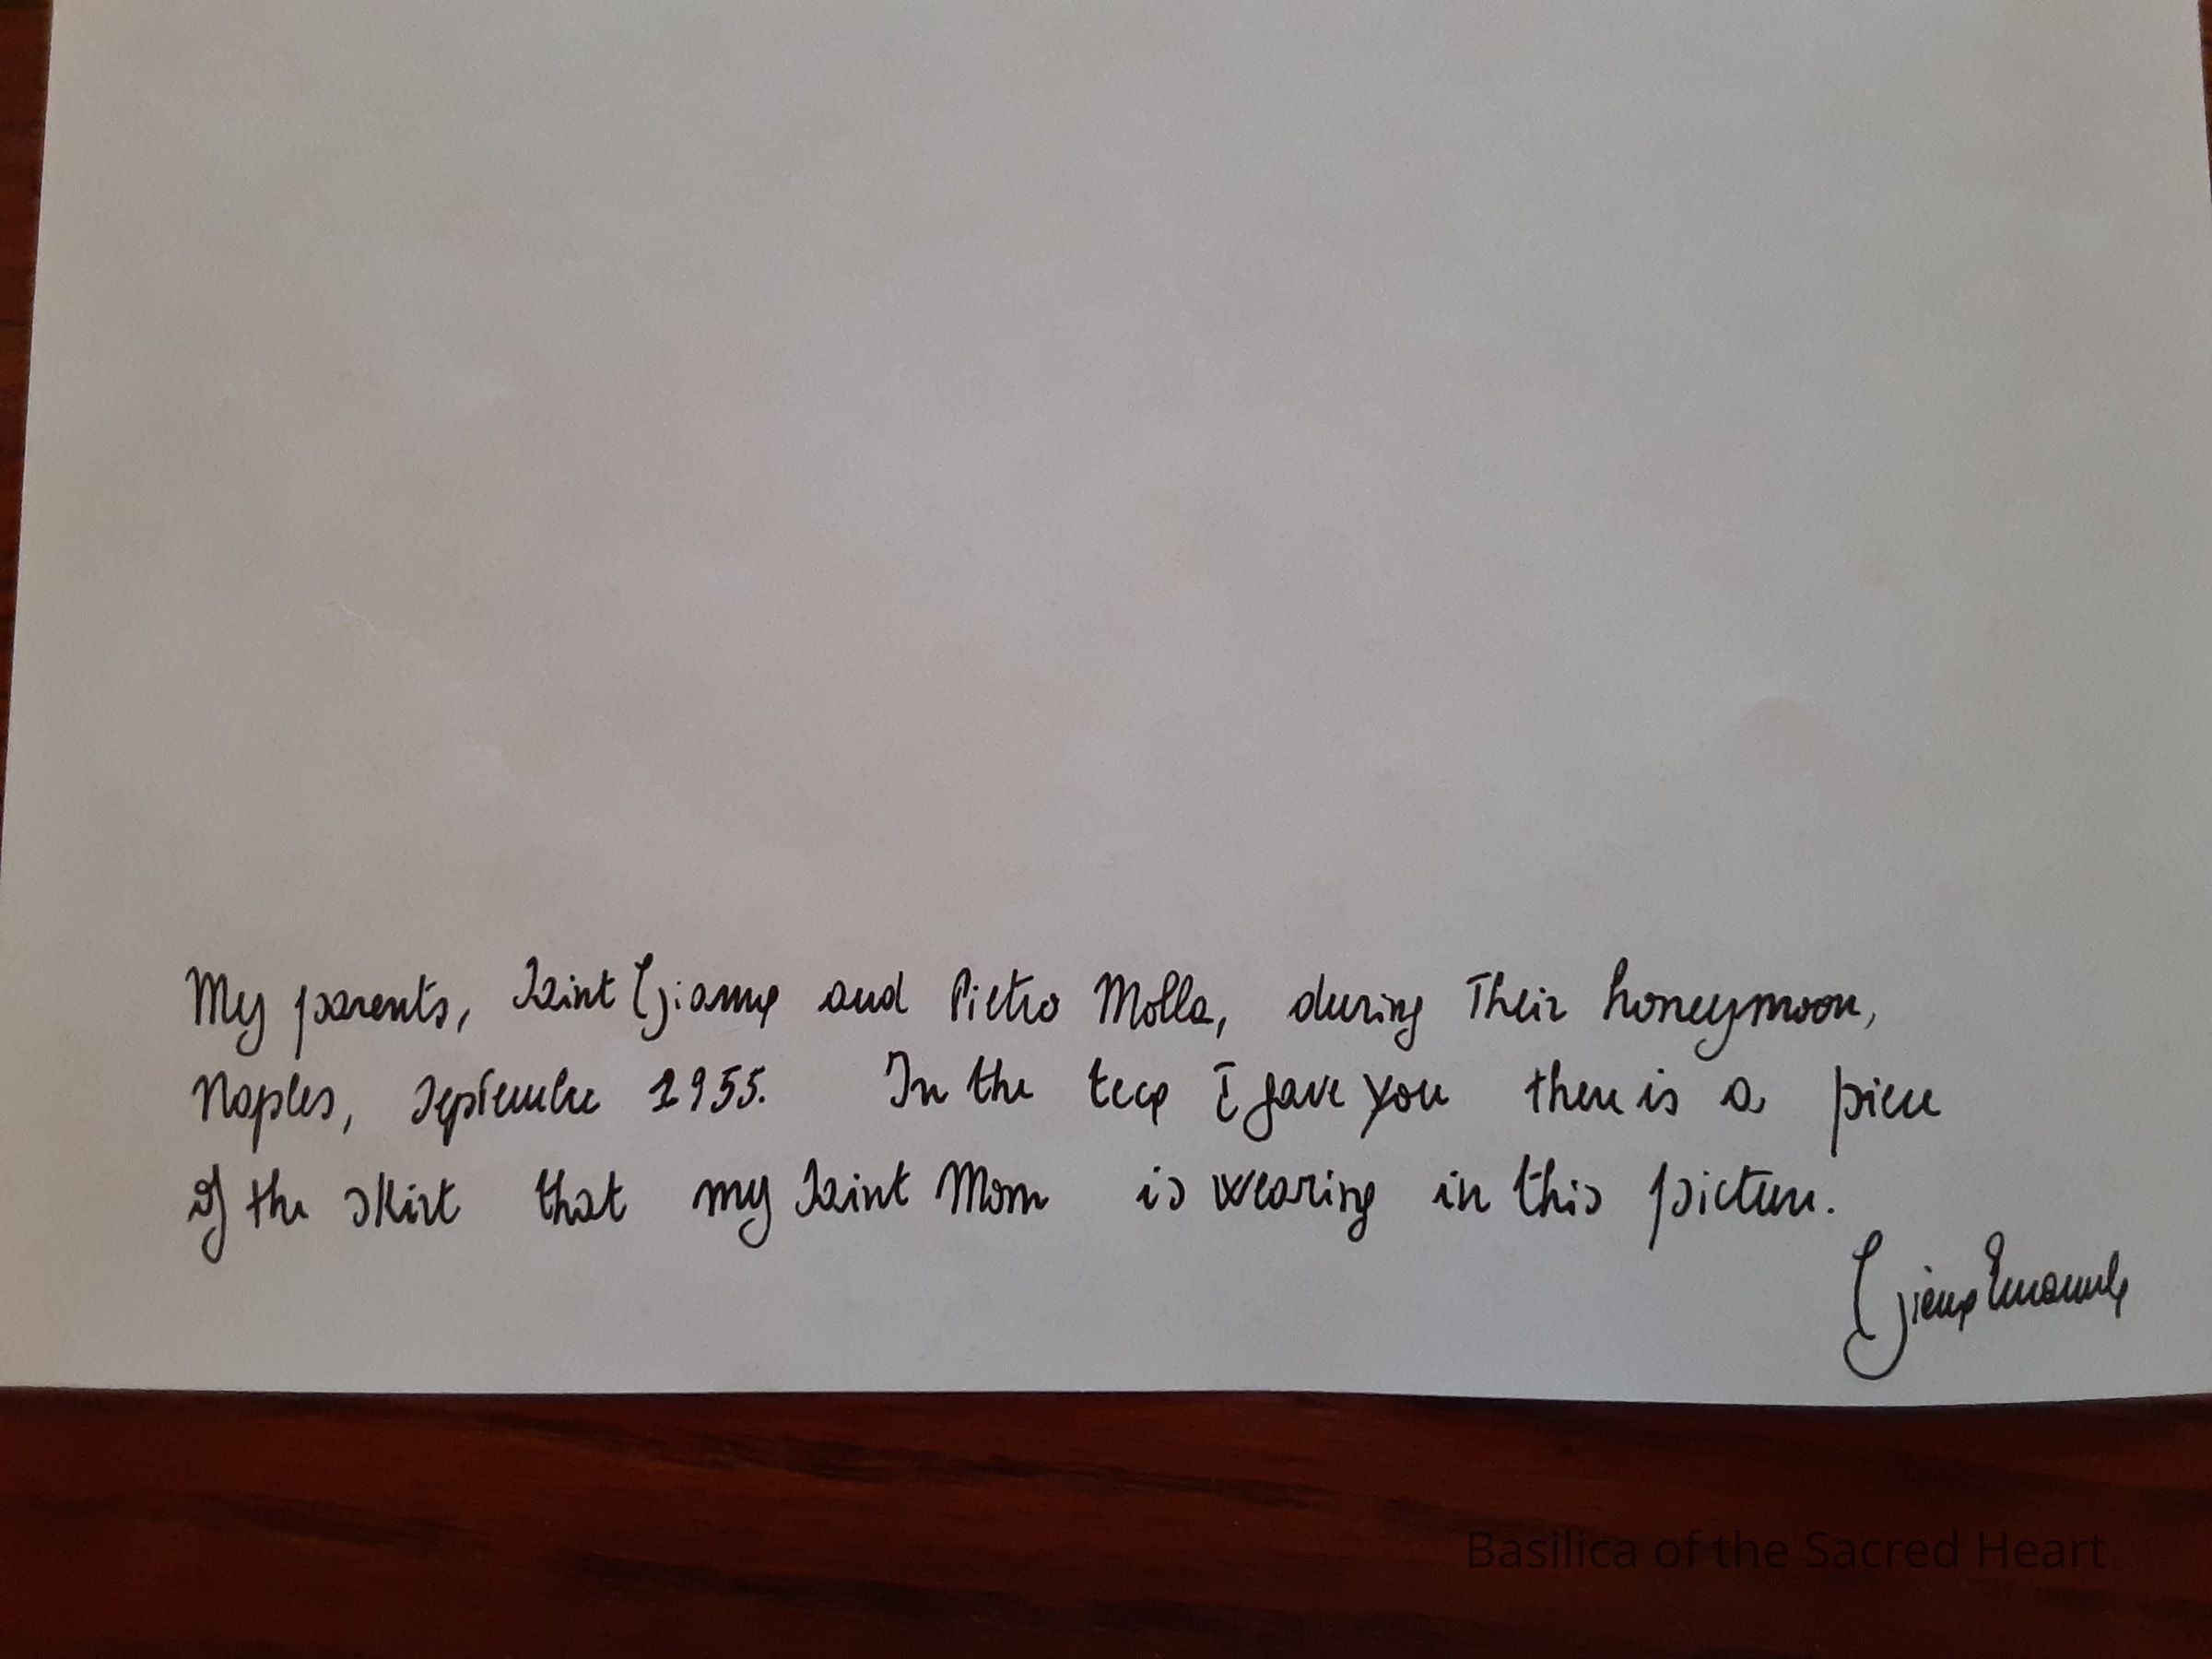 My parents, Saint Gianna and Pietro Molla, during Their honeymoon,
Naples, September 1955. In the teca I gave you there is a piece
of the skirt that my Saint Mom is wearing in this picture.
Gianna Emanuela
Basilica of the Sacred Heart